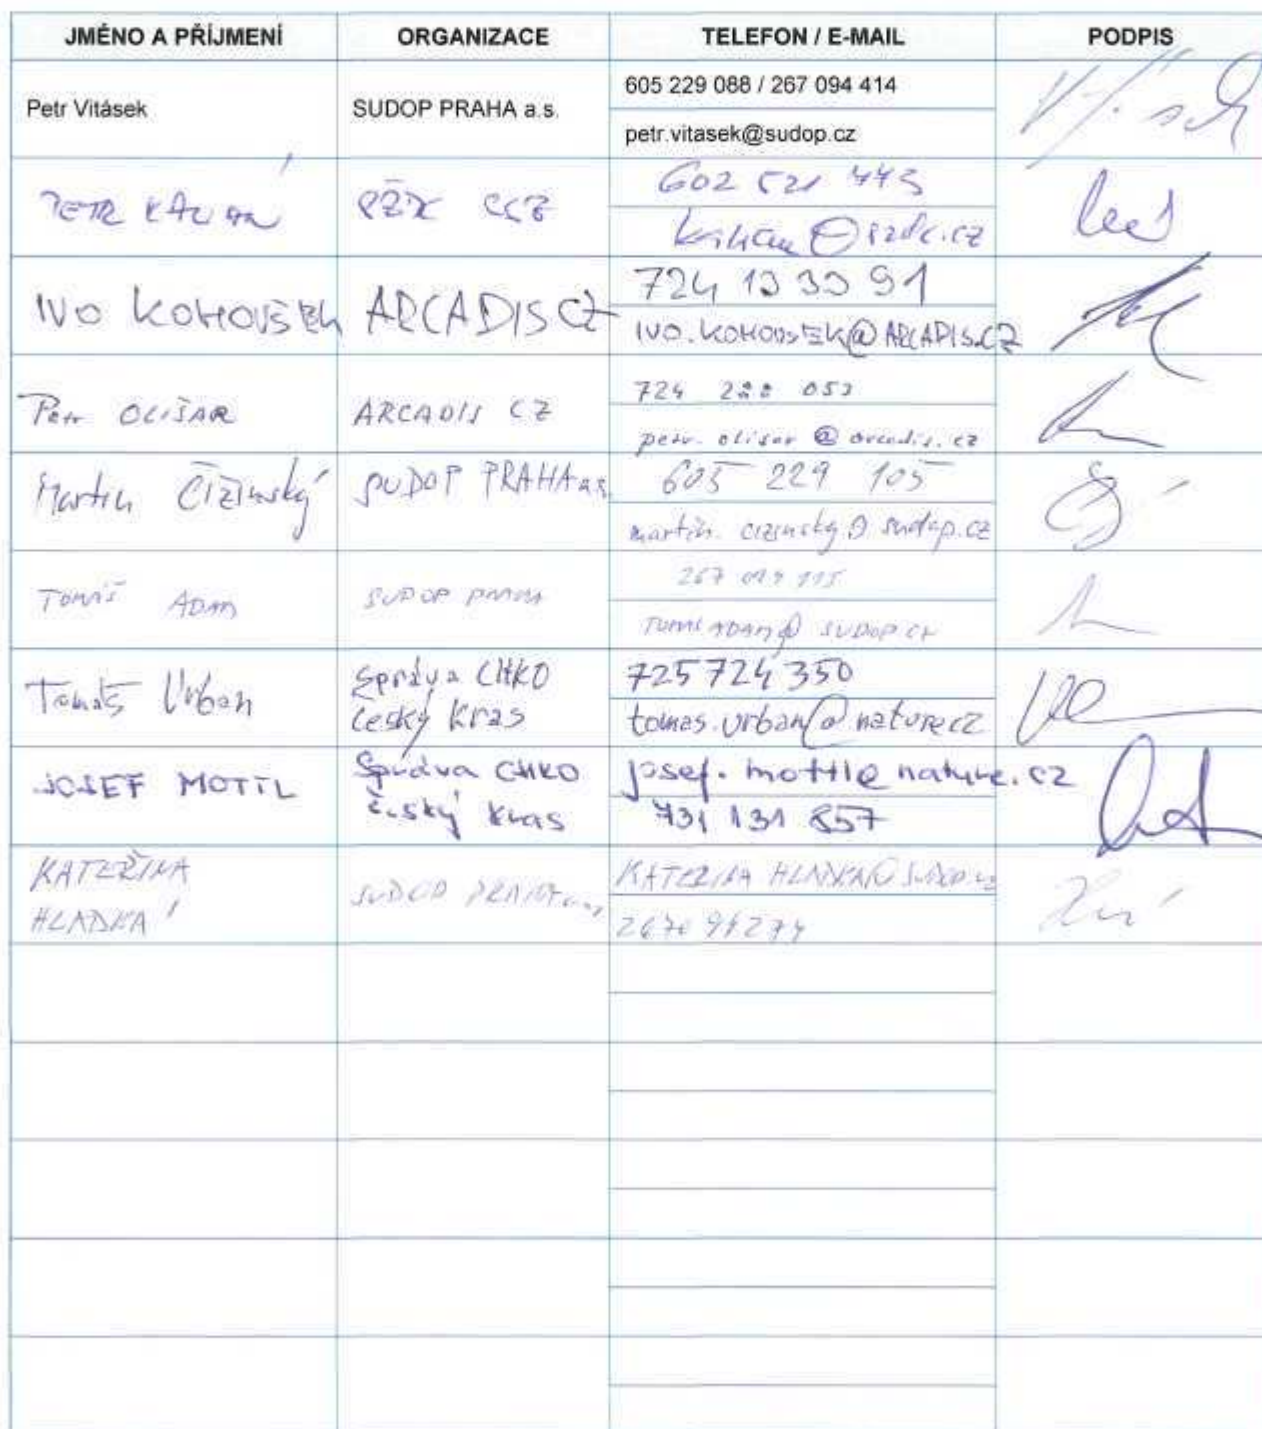 JMÉNO A PŘÍJMENÍ ORGANIZACE TELEFON / E-MAIL PODPIS
Petr Vitásek SUDOP PRAHA a.s. 605 229 088 / 267 094 414
petr.vitasek@sudop.cz
PETR
602 521
@szdc.cz
IVO KOHOUŠEK ARCADIS CZ 724 19 39 91
IVO.KOHOUSEK@ARCADIS.CZ
Petr OLIŠAR ARCADIS CZ 724 222 053
petr.olisar@arcadis.cz
Martin Čižinský SUDOP PRAHA a.s. 605 229 105
martin.cizinsky@sudop.cz
TOMÁŠ ADAM SUDOP PRAHA 267 094 115
SUDOP.CZ
Tomáš Urban Správa CHKO Český Kras 725 724 350
tomas.urban@nature.cz
JOSEF MOTTL Správa CHKO Český Kras josef.mottl@nature.cz
731 131 857
KATEŘINA HLADKÁ SUDOP PRAHA a.s. KATERINA.HLADKA@SUDOP.cz
267094274